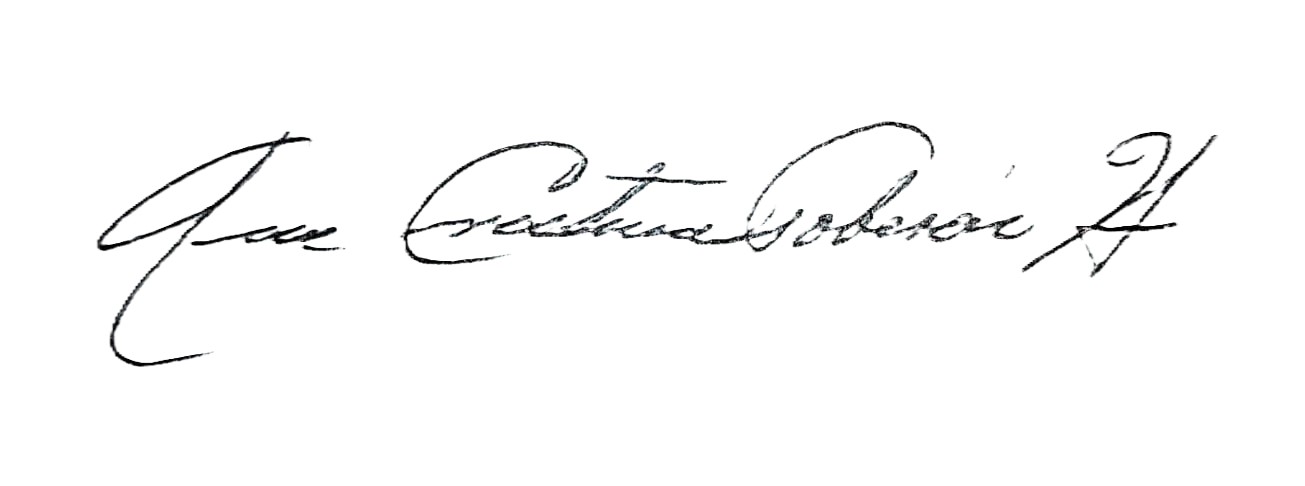 Ana Cristina Soberón H